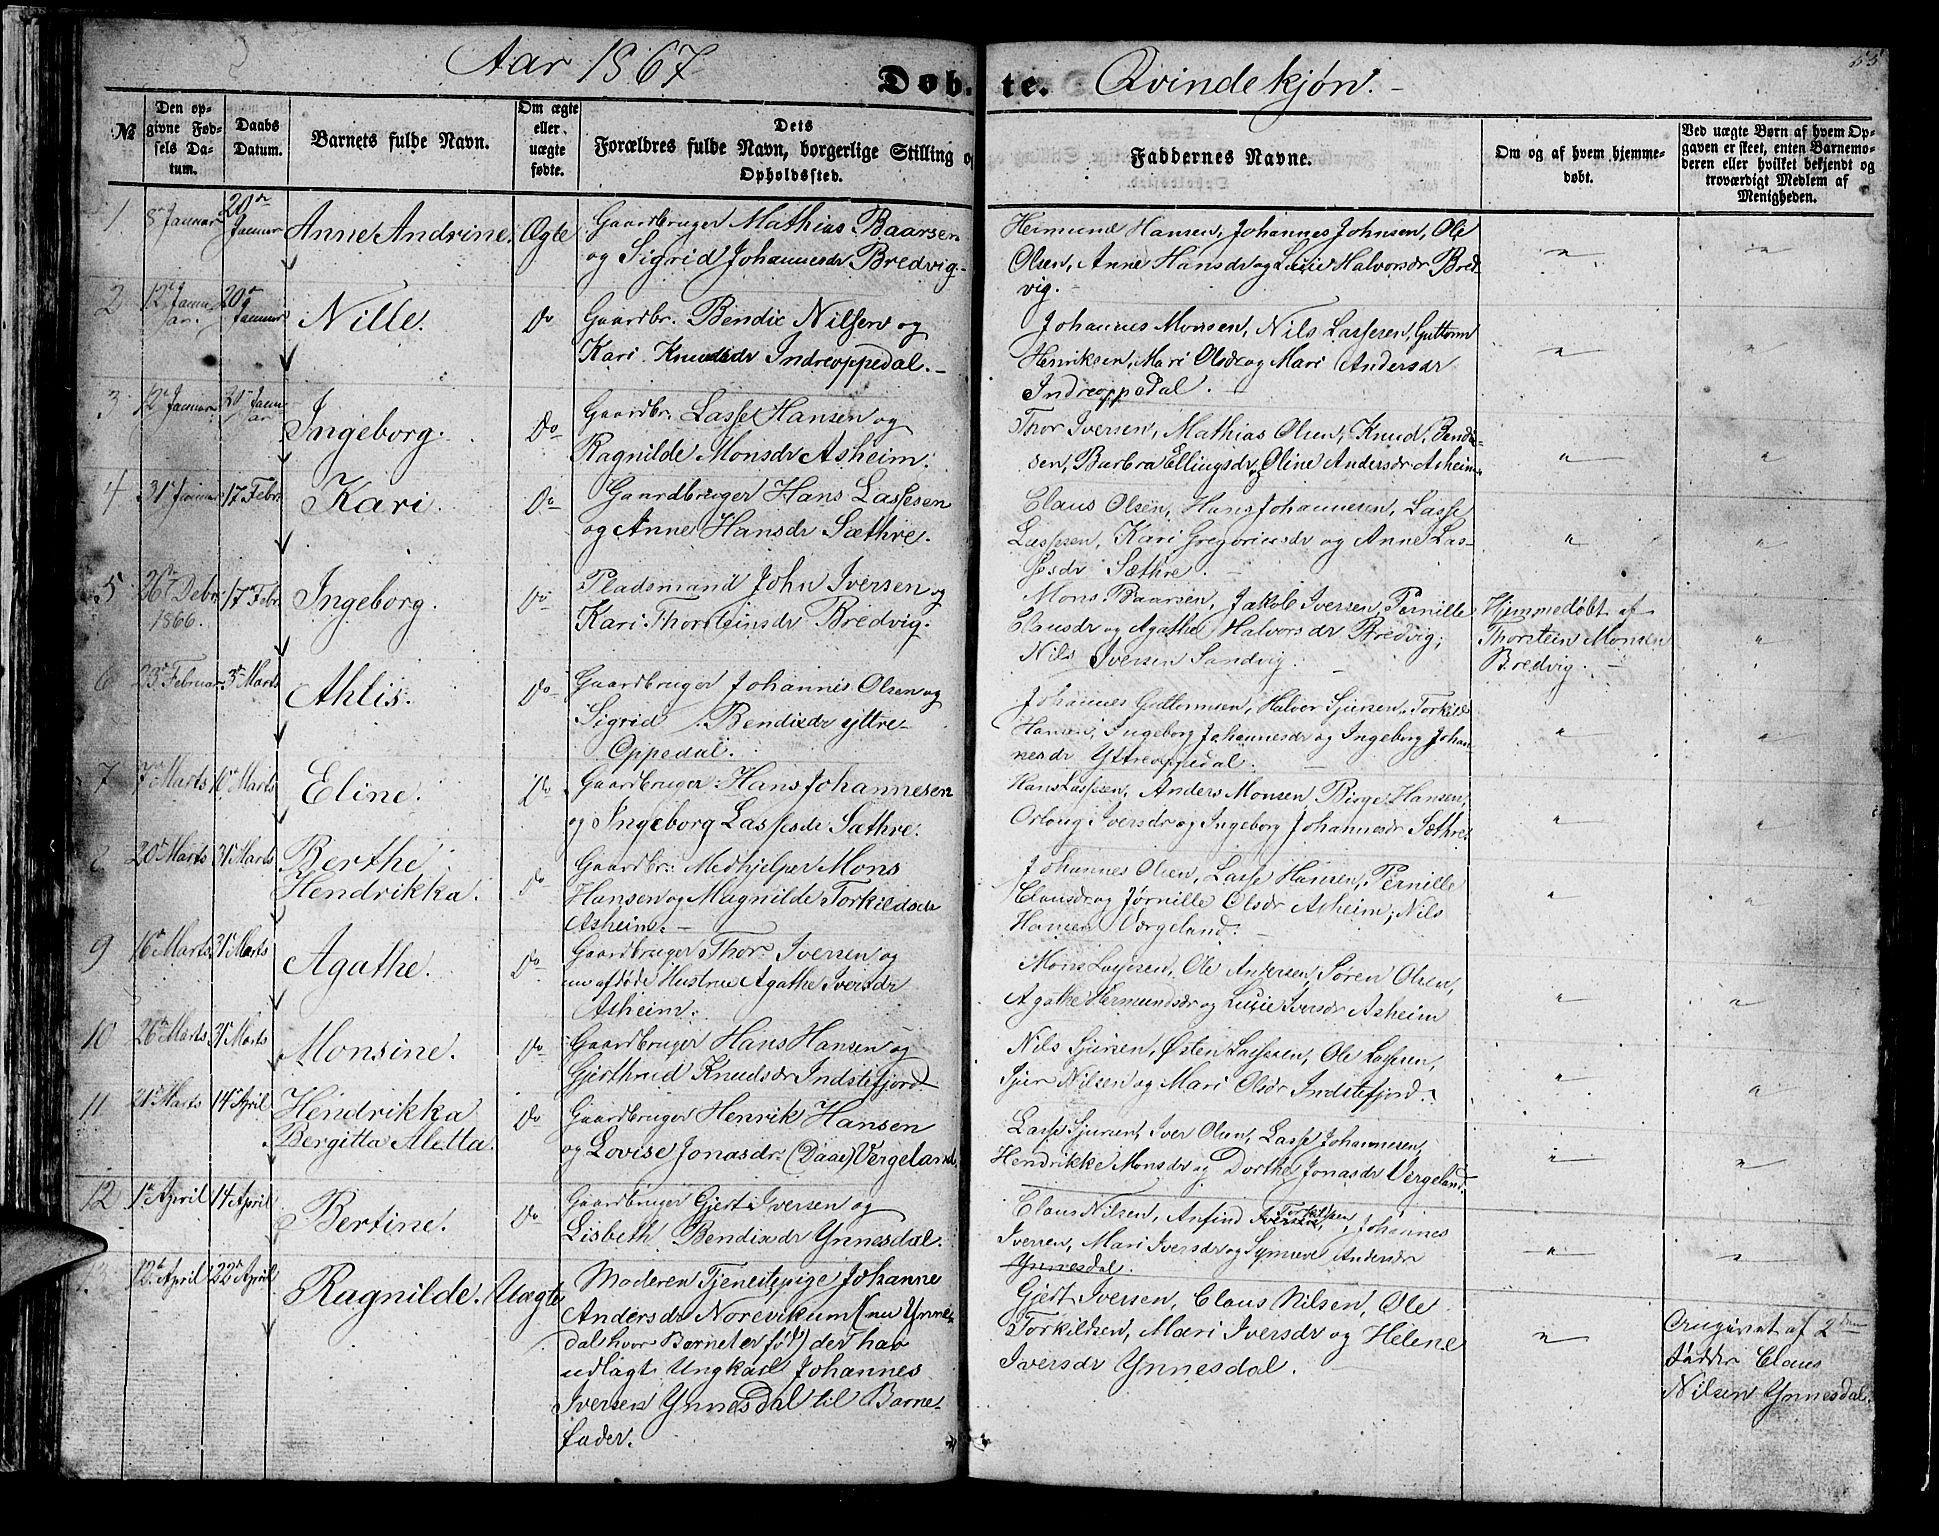 Aar 1867
Døb-te.
Qvindekjøn.
55
№
Den op-
givne Fød-
sels Da-
tum.
Daabs
Datum.
Barnets fulde Navn.
Om ægte
eller
uægte
fødte.
Dets
Forældres fulde Navn, borgerlige Stilling o
Opholdssted.
Faddernes Navne.
Om og af hvem hjemme-
døbt.
Ved uægte Børn af hvem Op-
gaven er skeet, enten Barnemo-
deren eller hvilket bekjendt og
troværdigt Medlem af
Menigheden.
1
8de Januar
20de Januar
Anne Andrine.
Ægte
Gaardbruger Mathias Baarsen
og Sigrid Johannesdr Bredvig.
Hermund Hansen, Johannes Johnsen, Ole
Olsen, Anne Hansdr og Lucie Halvorsdr Bred
vig.
2
12te Janu
ar.
20de
Januar
Nille.
Do
Gaardbr. Bendix Nilsen og
Kari Knudsdr Indreoppedal.
Johannes Monsen, Nils Lassesen, Guttorm
Henriksen, Mari Olsdr og Mari Andersdr
Indreoppedal.
3
12te Januar
20de Janu
ar
Ingeborg.
Do
Gaardbr. Lasse Hansen og
Ragnilde Monsdr Asheim.
Thor Iversen, Mathias Olsen, Knud Bendix-
sen, Barbra Ellingsdr og Oline Andersdr Asheim
4
31te Januar
17 Febr.
Kari.
Do
Gaardbruger Hans Lassesen
og Anne Hansdr Sæthre.
Claus Olsen, Hans Johannesen, Lasse
Lassesen, Kari Gregoriusdr og Anne Las-
sesdr Sæthre.
5
26de Debr
1866.
17de Febr.
Ingeborg.
Do
Pladsmand John Iversen og
Kari Thorsteinsdr Bredvig.
Mons Baarsen, Jakob Iversen, Pernille
Clausdr og Agathe Halvorsdr Bredvig;
Nils Iversen Sandvig.
Hjemmedøbt af
Thorstein Monsen
Bredvig.
6
23de Februar
3de Marts
Ahlis.
Do
Gaardbruger Johannes Olsen og
Sigrid Bendixdr yttre-
Oppedal.
Johannes Guttormsen, Halvor Sjursen, Torkild
Hansen, Ingeborg Johannesdr og Ingeborg Johan
nesdr Yttreoppedal.
7
7de Marts
10de Marts
Eline.
Do
Gaardbruger Hans Johannesen
og Ingeborg Lassesdr Sæthre.
Hans Lassesen, Anders Monsen, Birge Hansen,
Orloug Iversdr og Ingeborg Johannesdr Sæthre
8
20de Marts
31te Marts
Berthe
Hendrikka.
Do
Gaardbr. Medhjelper Mons
Hansen og Magnilde Torkildsdr
Asheim.
Johannes Olsen, Lasse Hansen, Pernille
Clausdr og Jørnille Olsdr Asheim; Nils
Hansen Værgeland.
9
16de Marts
31te Marts
Agathe.
Do
Gaardbruger Thor Iversen og
nu afdøde Hustrue Agathe Iversdr
Asheim.
Mons Lassesen, Ole Andersen, Søren Olsen,
Agathe Hermundsdr og Lucie Iversdr Asheim
10
26de Marts
31te Marts
Monsine.
Do
Gaardbruger Hans Hansen og
Gjerthrud Knudsdr Indstefjord
Nils Sjursen, Østen Lassesen, Ole Lassesen,
Sjur Nilsen og Mari Olsdr Indstefjord.
11
21de Marts
14de April
Hendrikka
Bergitta Aletta.
Do
Gaardbruger Henrik Hansen
og Lovise Jonasdr. (Daae) Vergeland.
Lasse Sjursen, Iver Olsen, Lasse Johannesen,
Hendrikke Monsdr og Dorthe Jonasdr Vergeland.
12
1te April
14 April
Bertine.
Do
Gaardbruger Gjert Iversen og
Lisbeth Bendixdr Ynnesdal.
Claus Nilsen, Anfind Iversen, Torkildsen, Johannes
Iversen, Mari Iversdr og Synneve Andersdr
Ynnesdal.
13
12te April
22de April
Ragnilde.
Uægte
Moderen Tjenestepige Johanne
Andersdr Norevikum (nu Ynnes-
dal hvor Barnet er født) der har
udlagt Ungkarl Johannes
Iversen Ynnesdal til Barne-
fader.
Gjert Iversen, Claus Nilsen, Ole
Torkildsen, Mari Iversdr og Helene
Iversdr Ynnesdal.
Angivet af 2den
Fadder Claus
Nilsen Ynnesdal.